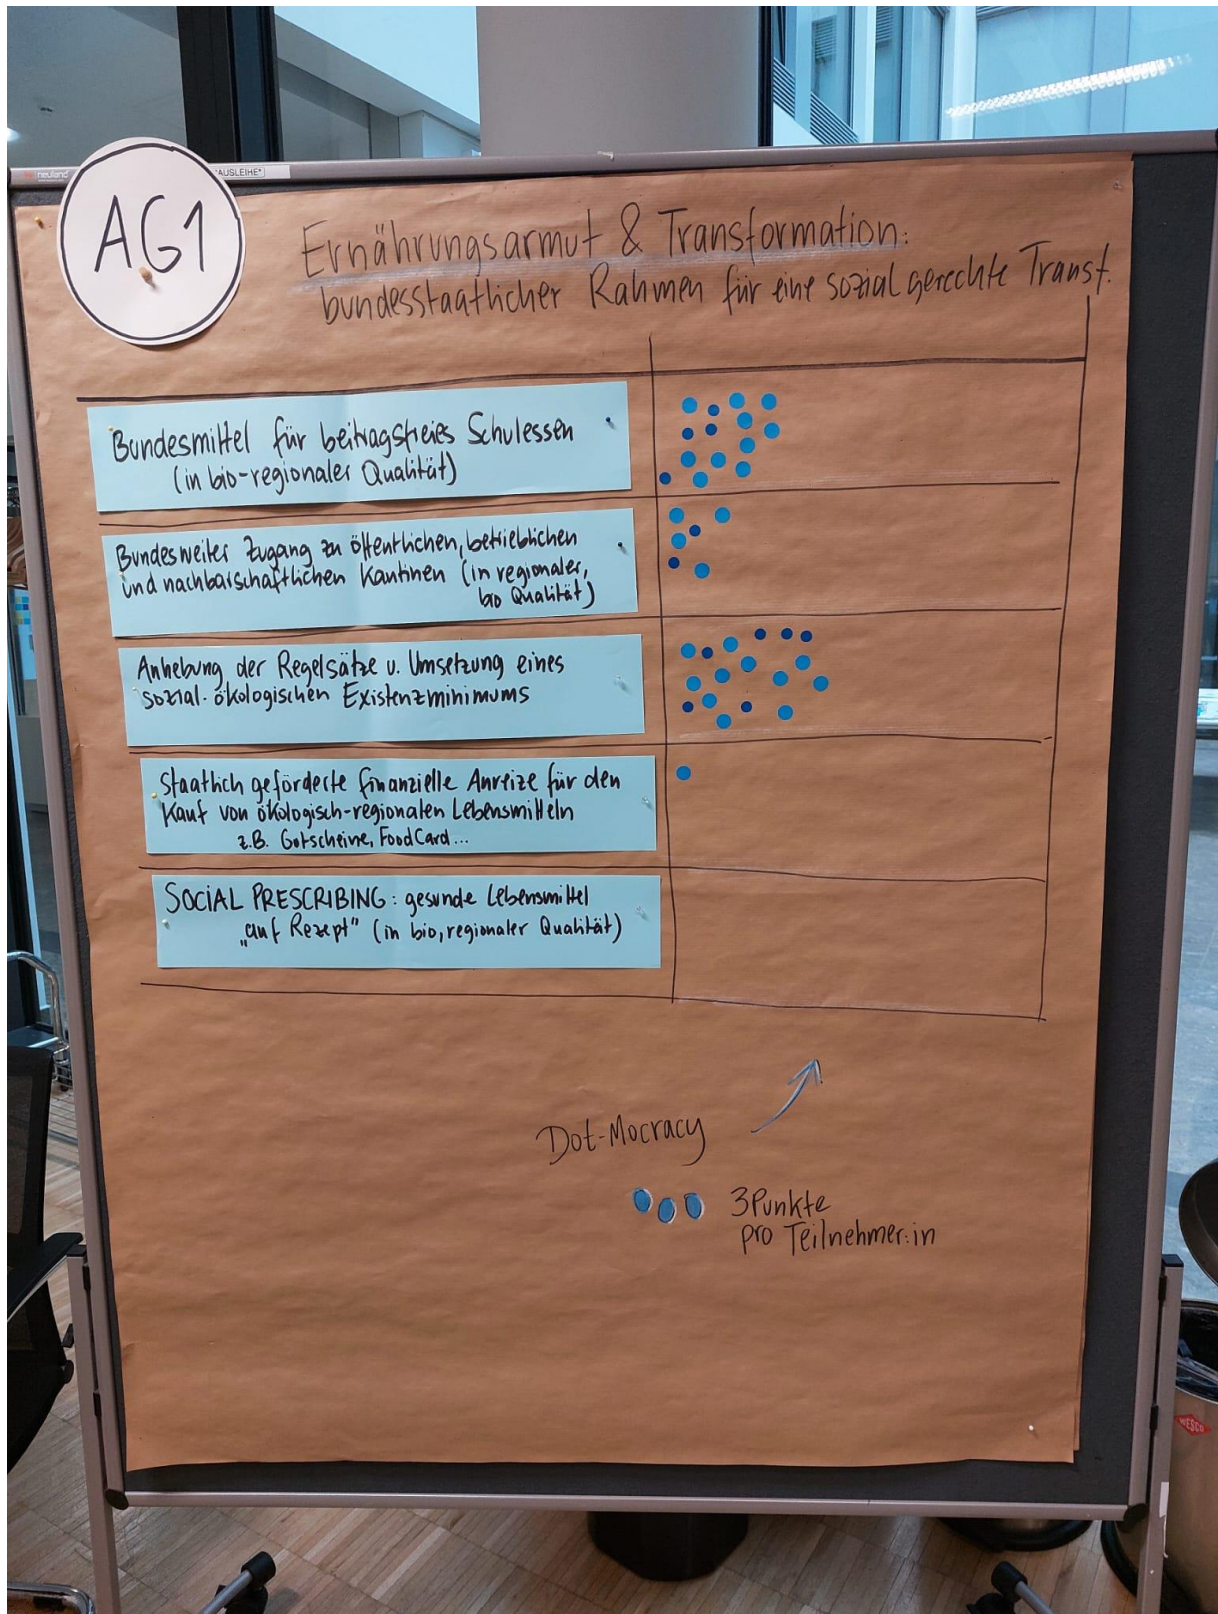 neuland
AUSLEIHE*
AG1
Ernährungsarmut & Transformation:
bundesstaatlicher Rahmen für eine sozial gerechte Transf.
Bundesmittel für beitragsfreies Schulessen
(in bio-regionaler Qualität)
Bundesweiter Zugang zu öffentlichen, betrieblichen
und nachbarschaftlichen Kantinen (in regionaler,
bio Qualität)
Anhebung der Regelsätze u. Umsetzung eines
sozial-ökologischen Existenzminimums
Staatlich geförderte finanzielle Anreize für den
Kauf von ökologisch-regionalen Lebensmitteln
z.B. Gutscheine, FoodCard...
SOCIAL PRESCRIBING: gesunde Lebensmittel
„auf Rezept" (in bio, regionaler Qualität)
Dot-Mocracy
3 Punkte
pro Teilnehmer:in
WESCO